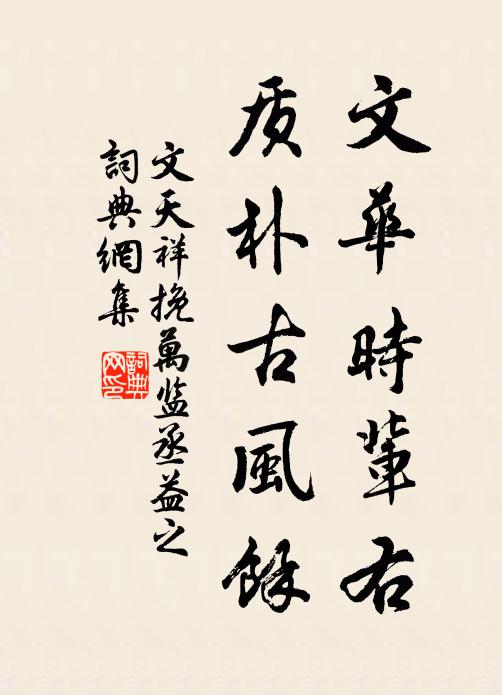 文華時輩右
质朴古風餘
文天祥挽萬监丞益之
詞典網集
詞典网印